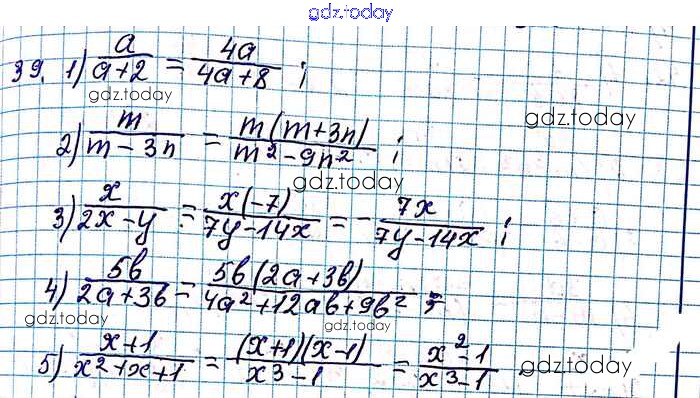 gdz.today
39. 1) a/(a+2) = 4a/(4a+8) ;
gdz.today gdz.today
2) m/(m-3n) = m(m+3n)/(m²-9n²) ;
gdz.today
3) x/(2x-y) = x(-7)/(7y-14x) = - 7x/(7y-14x) ;
4) 5b/(2a+3b) = 5b(2a+3b)/(4a²+12ab+9b²) ;
gdz.today gdz.today
5) (x+1)/(x²+x+1) = (x+1)(x-1)/(x³-1) = (x²-1)/(x³-1)
gdz.today